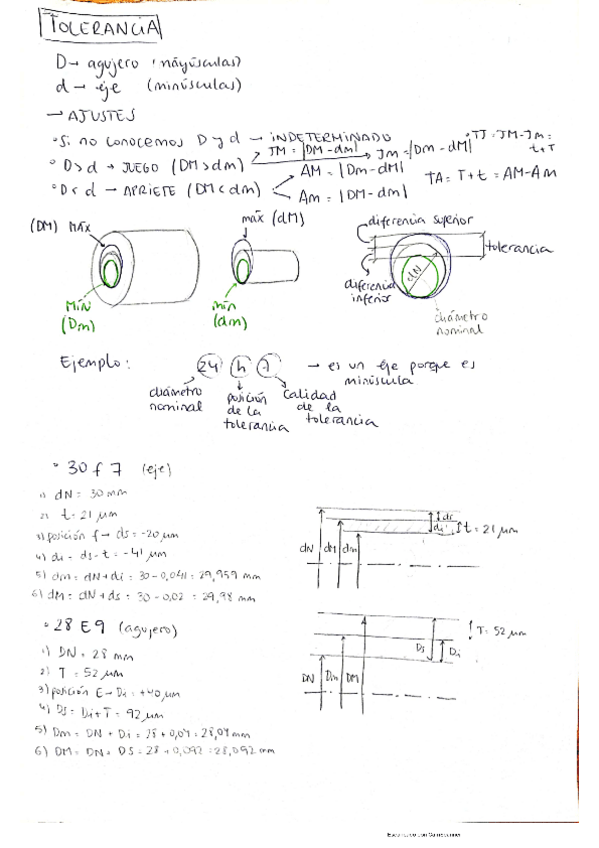 TOLERANCIA
D → agujero (mayúsculas)
d → eje (minúsculas)
→ AJUSTES
° Si no conocemos D y d → INDETERMINADO
° D > d → JUEGO (DM > dm) JM = |DM - dm| Jm = |Dm - dM| ° TJ = JM - Jm = t + T
° D < d → APRIETE (DM < dm) AM = |Dm - dM| TA = T + t = AM - Am
Am = |DM - dm|
(DM) MÁX máx (dM) diferencia superior
tolerancia
diferencia inferior
dN
MÍN (Dm) mín (dm) diámetro nominal
Ejemplo: 24 h 7 → es un eje porque es minúscula
diámetro nominal posición de la tolerancia calidad de la tolerancia
° 30 f 7 (eje)
1) dN = 30 mm
2) t = 21 μm
3) posición f → ds = -20 μm
4) di = ds - t = -41 μm
5) dm = dN + di = 30 - 0,041 = 29,959 mm
6) dM = dN + ds = 30 - 0,02 = 29,98 mm
dN dM dm ds di t = 21 μm
° 28 E9 (agujero)
1) DN = 28 mm
2) T = 52 μm
3) posición E → Di = +40 μm
4) Ds = Di + T = 92 μm
5) Dm = DN + Di = 28 + 0,04 = 28,04 mm
6) DM = DN + DS = 28 + 0,092 = 28,092 mm
DN Dm DM Ds Di T = 52 μm
Escaneado con CamScanner